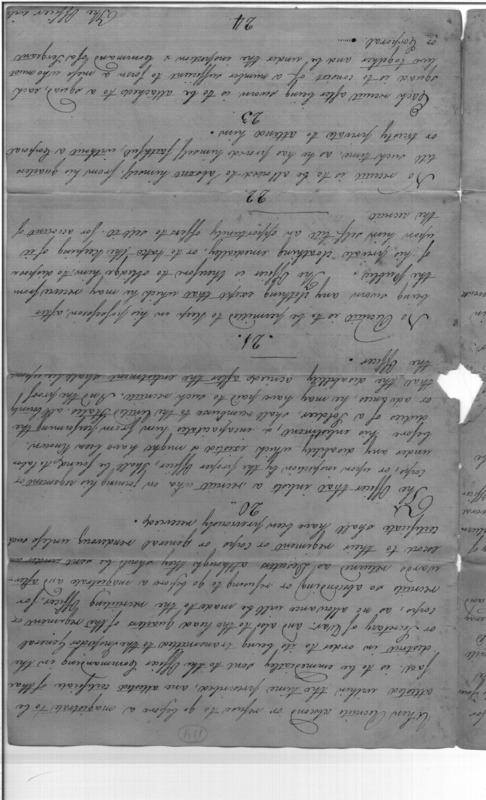 When Recruits abscond or refuse to go before a magistrate to be
attested within the time prescribed, an attested certificate of that
fact is to be immediately sent to the Officer Commanding in the
district in order to its being transmitted to the Inspector General
or Secretary of War, and also to the head quarters of the regiment or
corps, as no allowance will be made to the recruiting Officer for
recruits so absconding or refusing to go before a magistrate and after-
wards returned as Deserters although they should be
sent to their regiment or corps or general rendezvous unless such
certificate shall have been previously received.
20
The Officer that inlists a recruit who on joining his regiment or
corps, or upon inspection by the proper Officer, shall be found to labor
under any disability which existed & might have been known
before his enlistment, & incapacitates him from performing the
duties of a Soldier shall reimburse to the United States all bounty
or advance he may have paid to such recruit, And the proof
that the disability accrued after the enlistment shall be upon
the Officer.
21
No Recruit is to be permitted to keep in his possession, after
being sworn any clothing except that which he may receive from
the Public. The Officer is therefore to oblige him to dispose
of his private cloathing immediately, or to take the keeping of it
upon himself till an opportunity offers to sell it for account of
the recruit
22
No recruit is to be allowed to absent himself, from his quarters
till such time, as he has proved himself faithful, without a Corporal
or trusty private to attend him.
23
Each recruit after being sworn is to be attached to a squad, each
squad is to consist of a number sufficient to form a mess who must
live together and be under the inspection & command of a Sergeant
or Corporal.
24
The Officer